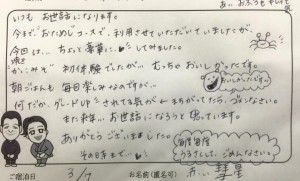 あ、おふろもキレイで
いつも お世話になります。
今まで、おためしコースで、利用させていただいていましたが、
今回は… ちょっと豪華に…してみました。
焼き
"かにみそ" 初体験でしたが… むっちゃおいしかったです。
朝ごはんも 毎回楽しみなのですが…
おいしかったです
何だか、グレードUPされてる気が… まちがってたら、ごめんなさい。
また 来年… お世話になろうと 思っています。
ありがとう ございました。
その日まで…
うるさくして、ごめんなさい。
ご宿泊日 3/7 お名前(匿名可) 赤い彗星